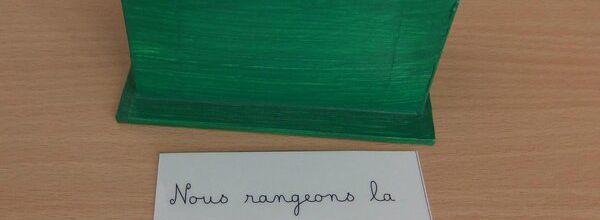 Nous rangeons la